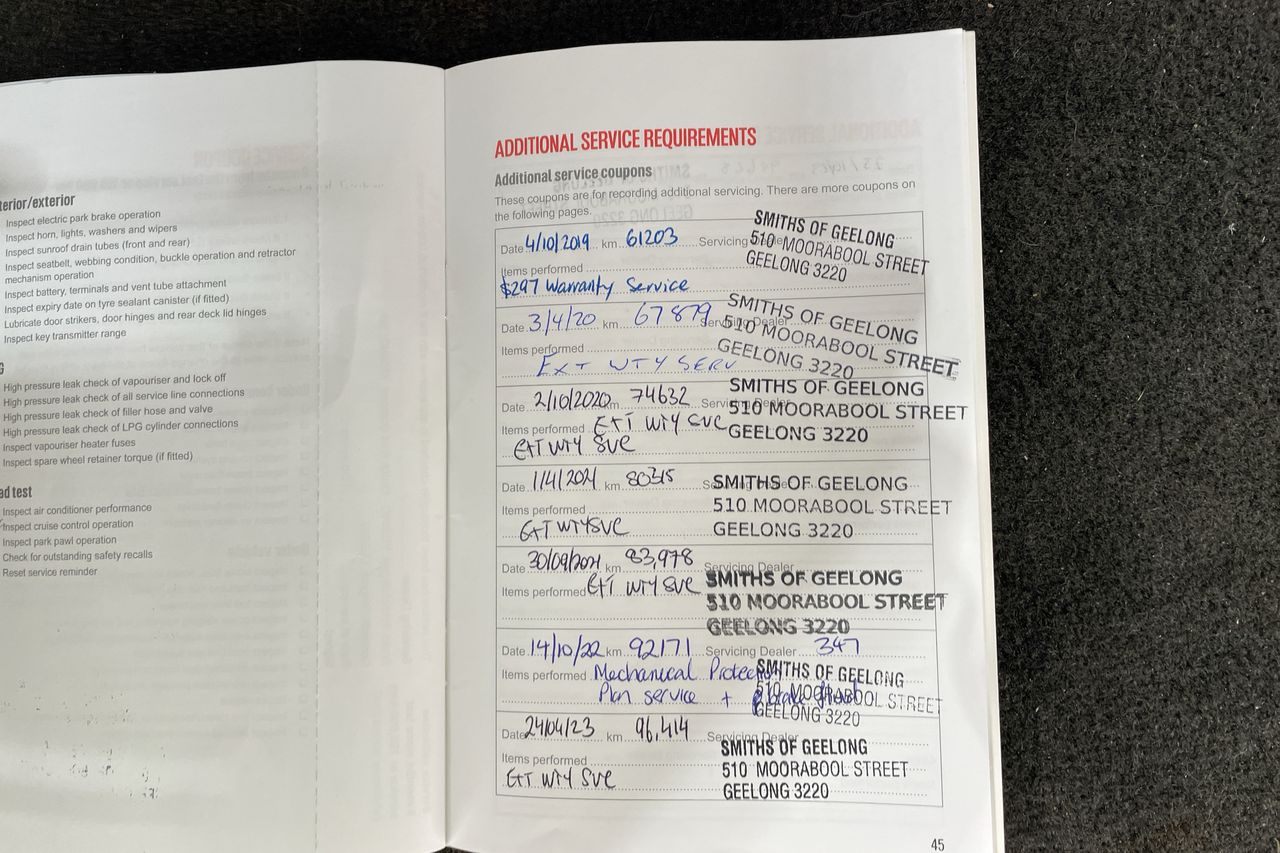 terior/exterior
Inspect electric park brake operation
Inspect horn, lights, washers and wipers
Inspect sunroof drain tubes (front and rear)
Inspect seatbelt, webbing condition, buckle operation and retractor
mechanism operation
Inspect battery, terminals and vent tube attachment
Inspect expiry date on tyre sealant canister (if fitted)
Lubricate door strikers, door hinges and rear deck lid hinges
Inspect key transmitter range
G
High pressure leak check of vapouriser and lock off
High pressure leak check of all service line connections
High pressure leak check of filler hose and valve
High pressure leak check of LPG cylinder connections
Inspect vapouriser heater fuses
Inspect spare wheel retainer torque (if fitted)
ad test
Inspect air conditioner performance
Inspect cruise control operation
Inspect park pawl operation
Check for outstanding safety recalls
Reset service reminder
ADDITIONAL SERVICE REQUIREMENTS
Additional service coupons
These coupons are for recording additional servicing. There are more coupons on
the following pages.
Date 4/10/2019 km 61203 Servicing
SMITHS OF GEELONG
510 MOORABOOL STREET
GEELONG 3220
Items performed
$297 Warranty Service
Date 3/4/20 km 67879 Servicing Dealer
SMITHS OF GEELONG
510 MOORABOOL STREET
GEELONG 3220
Items performed
EXT WTY SERV
Date 2/10/2020 km 74632 Servicing
SMITHS OF GEELONG
510 MOORABOOL STREET
GEELONG 3220
Items performed EXT WTY SVC
EXT WTY SVC
Date 1/4/2021 km 80315
SMITHS OF GEELONG
510 MOORABOOL STREET
GEELONG 3220
EXT WTY SVC
Date 30/09/2021 km 83,978 Servicing Dealer
SMITHS OF GEELONG
510 MOORABOOL STREET
GEELONG 3220
Items performed EXT WTY SVC
Date 14/10/22 km 92171 Servicing Dealer 347
Items performed Mechanical Protection
Plan service +
SMITHS OF GEELONG
510 MOORABOOL STREET
GEELONG 3220
Date 24/04/23 km 96,414 Servicing Dealer
SMITHS OF GEELONG
510 MOORABOOL STREET
GEELONG 3220
Items performed
EXT WTY SVC
45